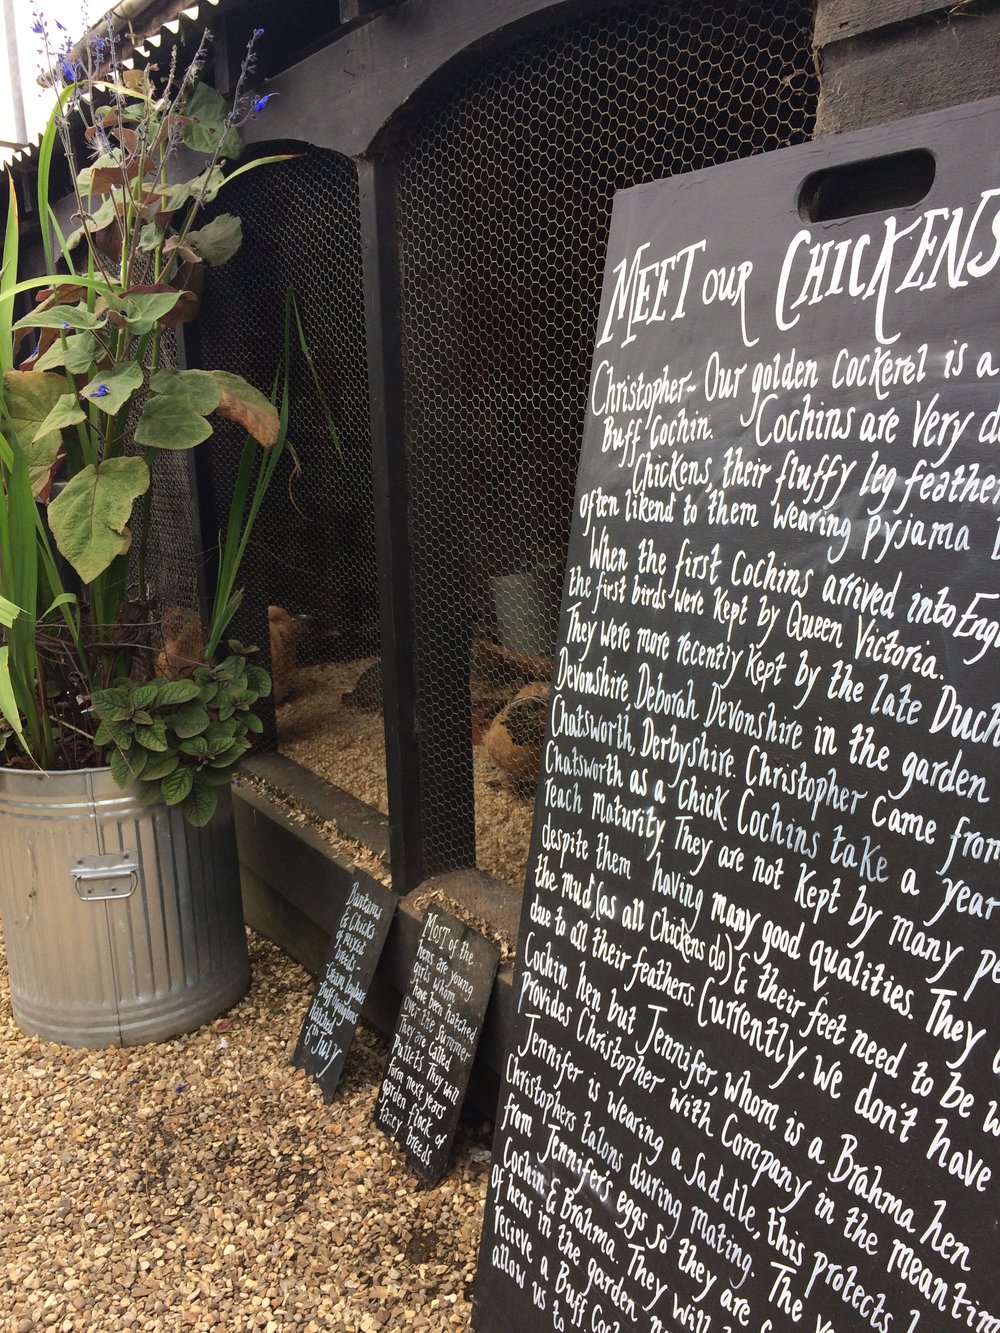 MEET OUR CHICKENS
Christopher~ Our golden cockerel is a
Buff Cochin. Cochins are very
Chickens, their fluffy leg
often likend to them wearing pyjama
When the first Cochins arrived into
the first birds were kept by Queen Victoria.
They were more recently kept by the late
Devonshire, Deborah Devonshire in the garden
Chatsworth, Derbyshire. Christopher came from
Chatsworth as a chick Cochins take a year
reach maturity. They are not kept by many
despite them having many good qualities. They
the mud, (as all chickens do) & their feet need to be
due to all their feathers. Currently, we don't have
Cochin hen but Jennifer, whom is a Brahma hen
provides Christopher with company in the
Jennifer is wearing a saddle, this protects
Christophers talons during mating. The
from Jennifers eggs, so they are
Cochin & Brahma. They will
of hens in the garden
recieve a Buff
allow us to
Bantams
& Chicks
of mixed
breed -
Hatched
7th
July
MOST of the
hens are young
girls whom
have been hatched
over the Summer
They are called
Pullets. They will
form next years
garden flock of
fancy breeds.